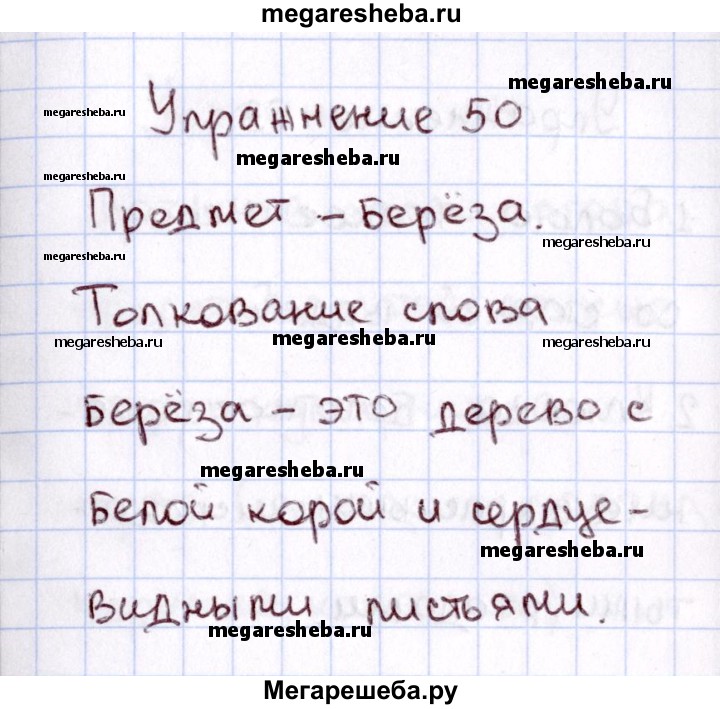 megaresheba.ru
megaresheba.ru
megaresheba.ru
Упражнение 50
megaresheba.ru
megaresheba.ru
Предмет – берёза.
megaresheba.ru
megaresheba.ru
Толкование слова
megaresheba.ru
megaresheba.ru
megaresheba.ru
Берёза – это дерево с
megaresheba.ru
белой корой и сердце-
megaresheba.ru
видными листьями.
megaresheba.ru
Мегарешеба.ру